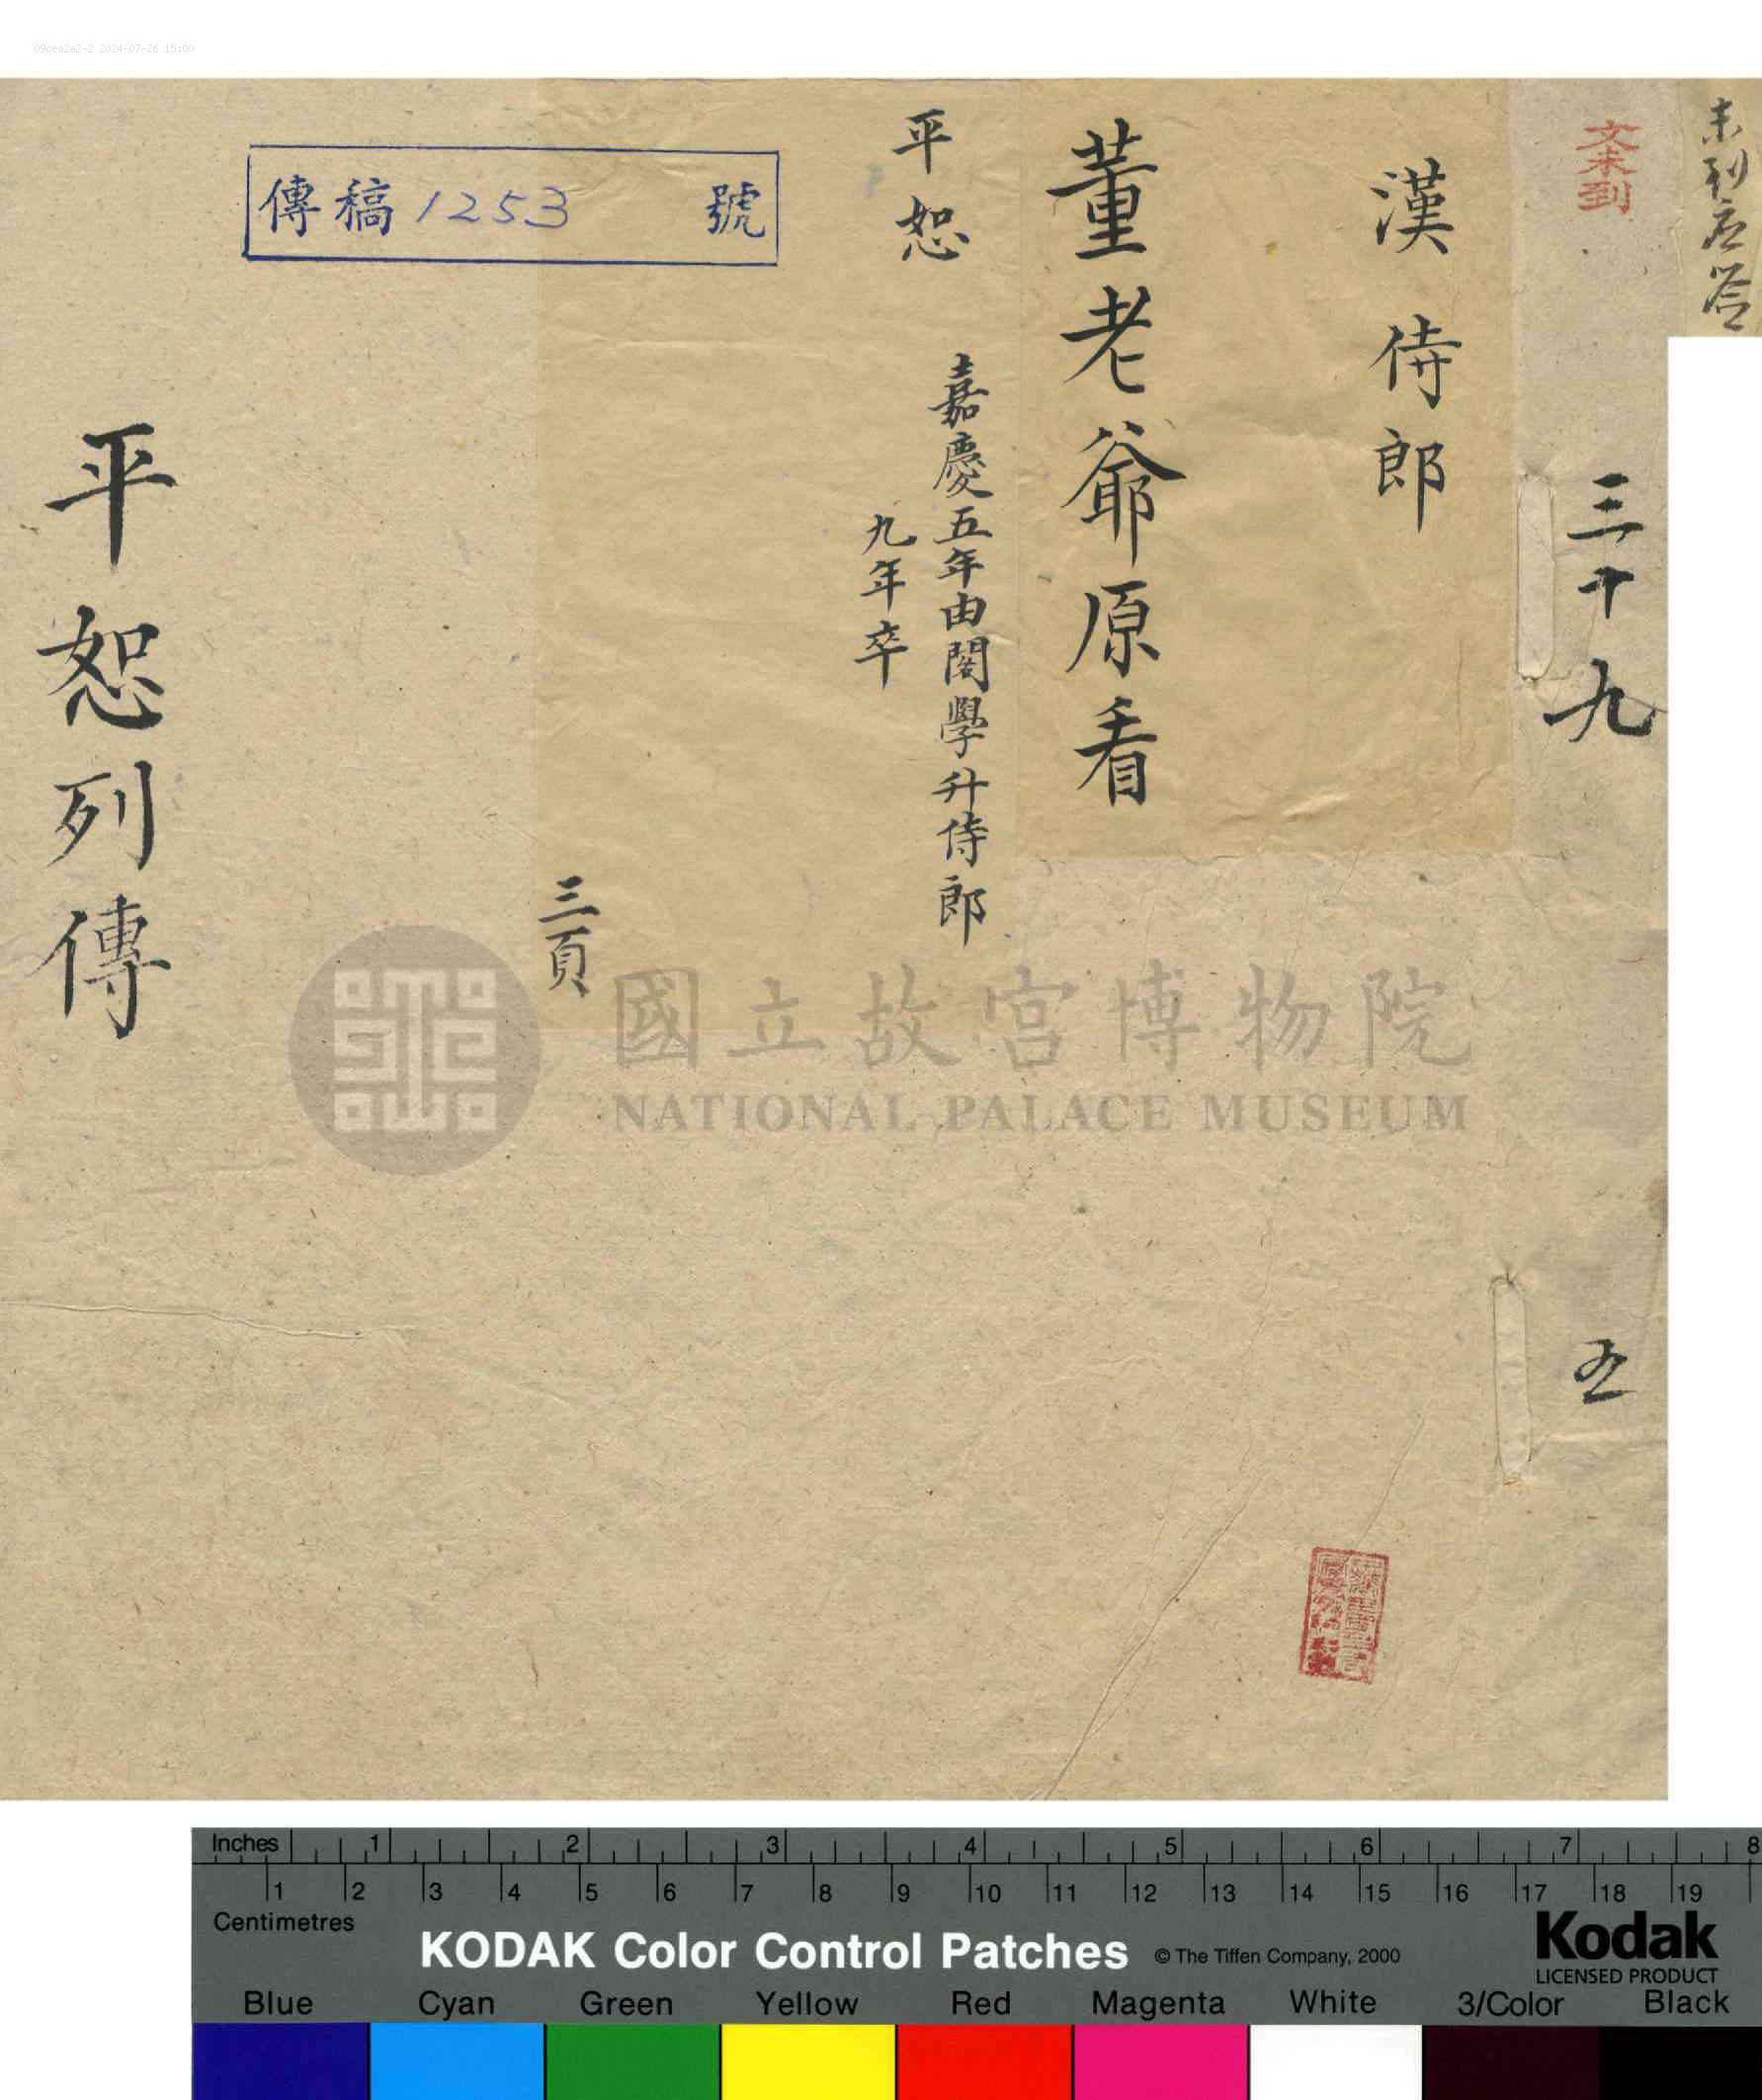 09cea2a2-2 2024-07-26 15:00
文未到
三十九
五
漢侍郎
董老爺原看
平恕
嘉慶五年由閣學升侍郎
九年卒
三頁
傳稿1253 號
平恕列傳
國立故宮博物院
NATIONAL PALACE MUSEUM
Inches 1 2 3 4 5 6 7 8
1 2 3 4 5 6 7 8 9 10 11 12 13 14 15 16 17 18 19
Centimetres
KODAK Color Control Patches © The Tiffen Company, 2000
Kodak
LICENSED PRODUCT
Blue Cyan Green Yellow Red Magenta White 3/Color Black